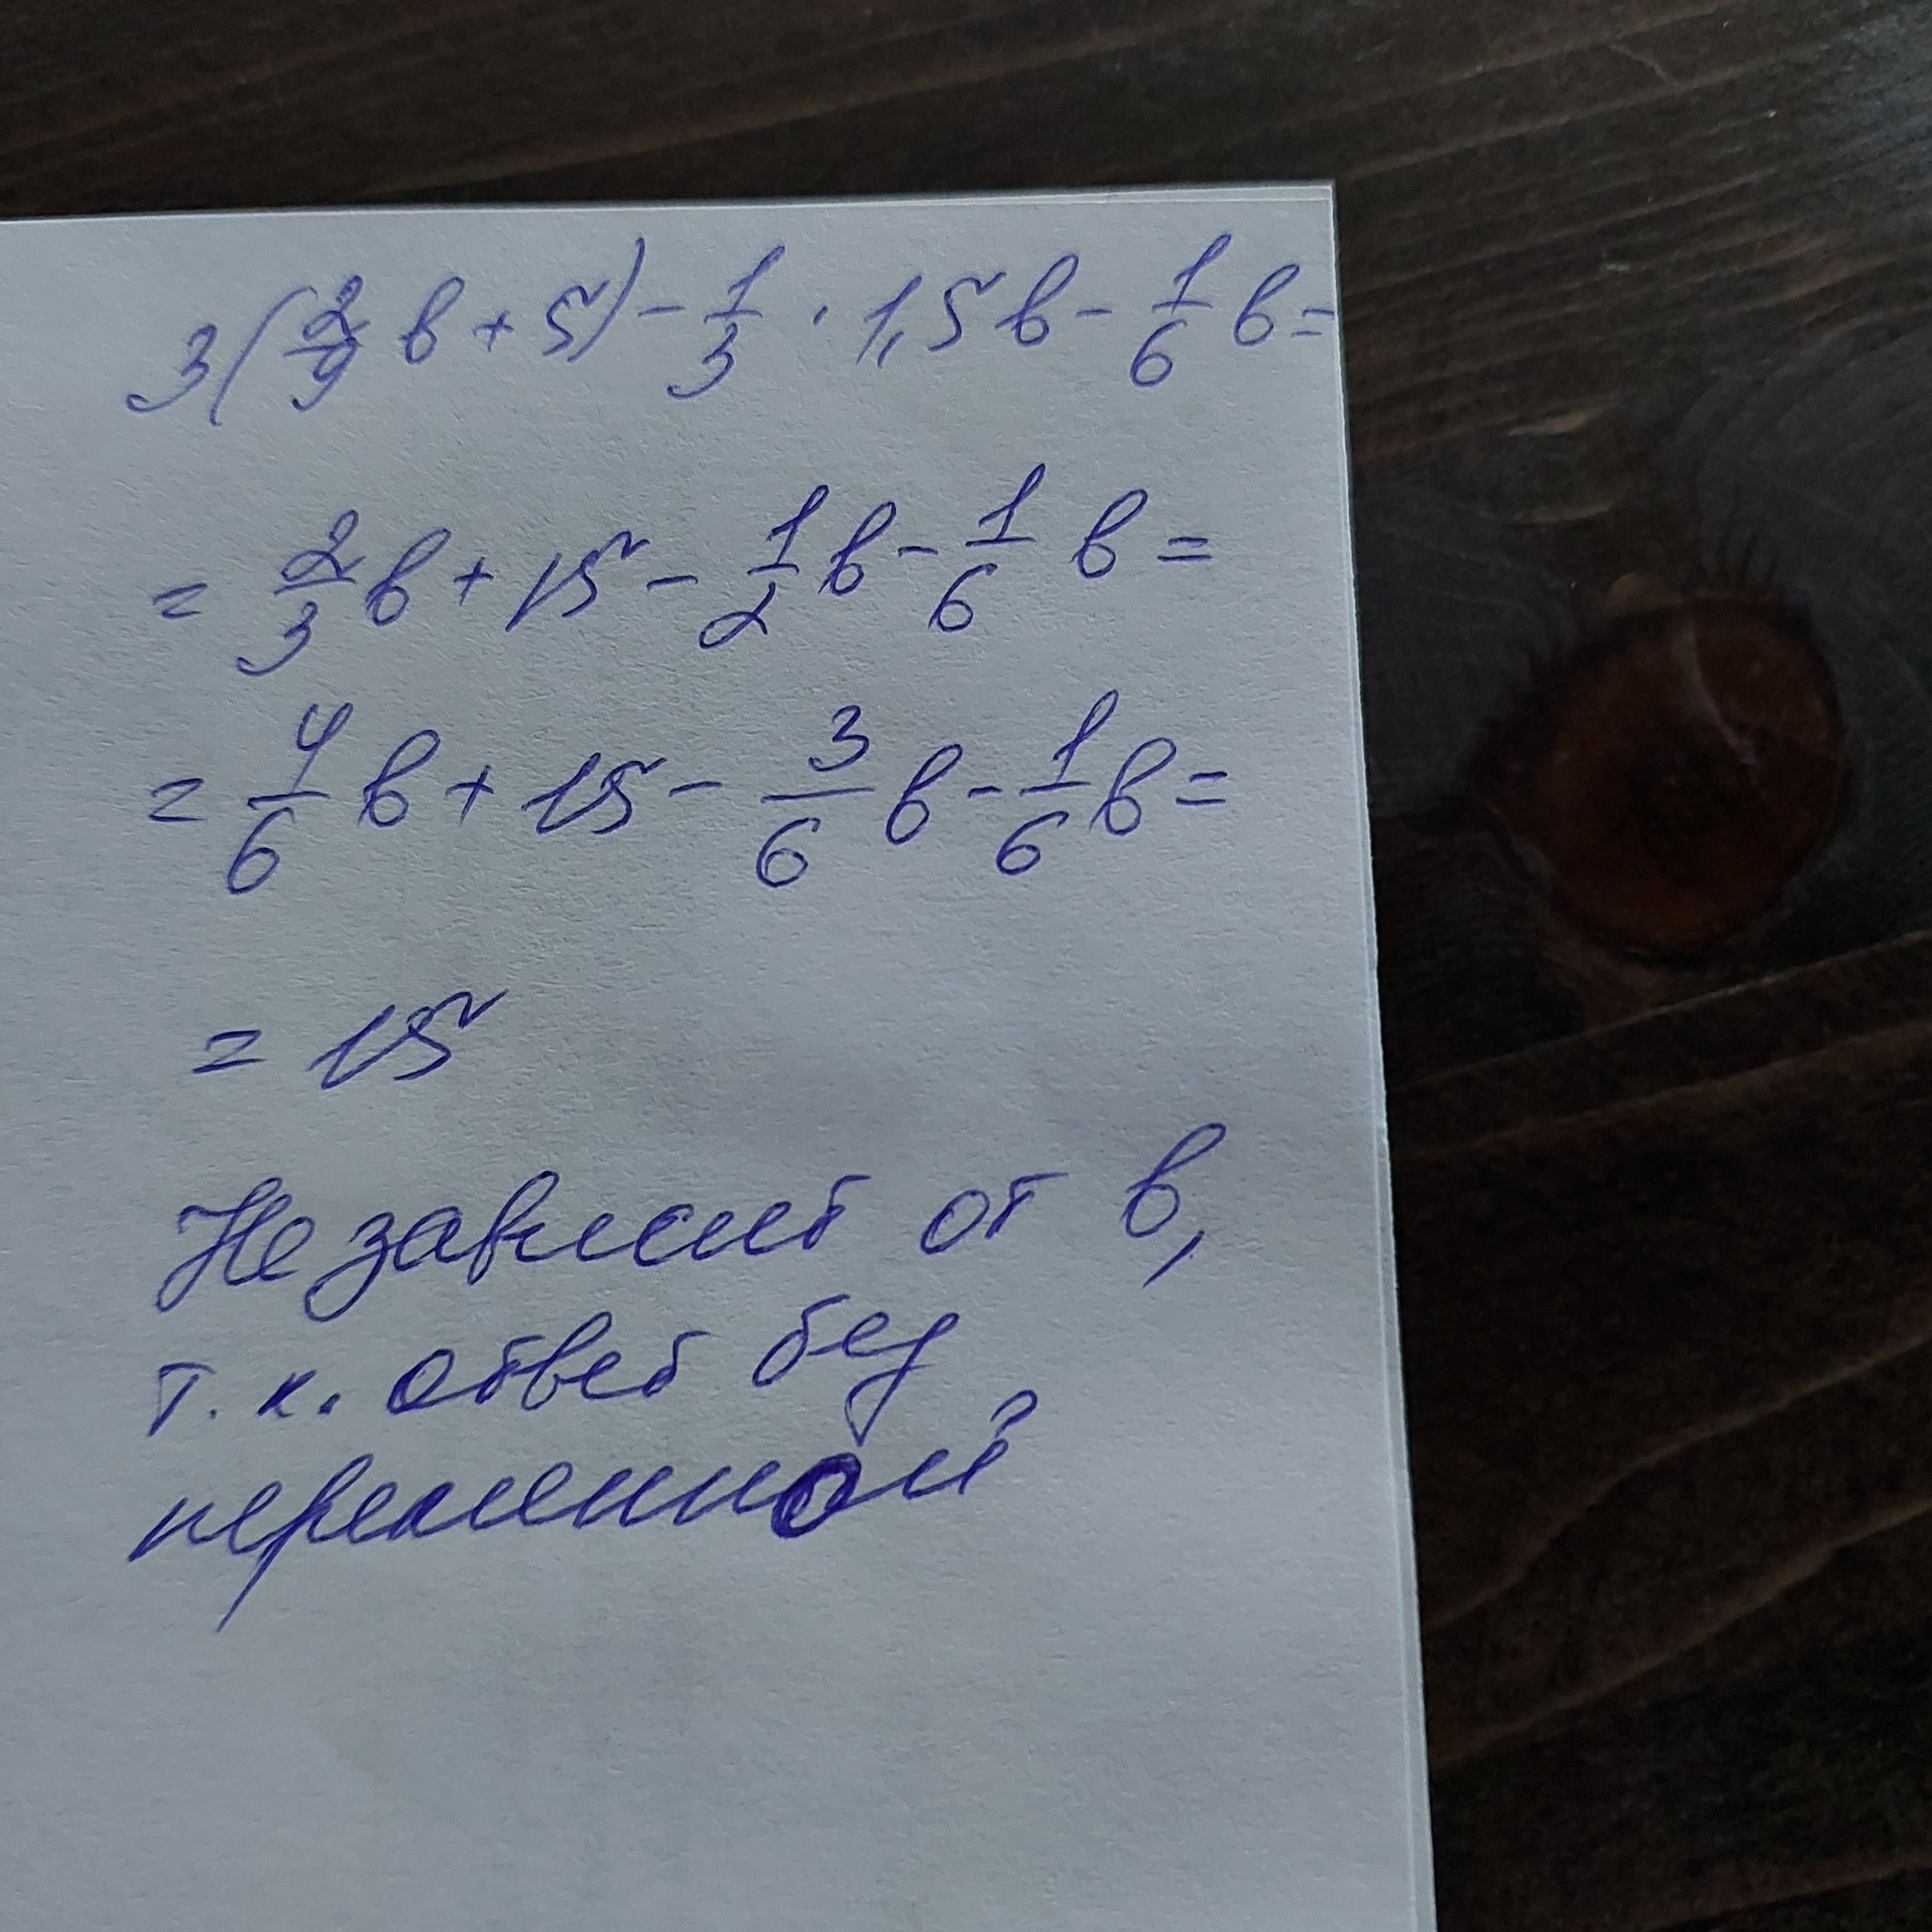 3(2/9 в + 5) - 1/3 · 1,5в - 1/6 в =
= 2/3 в + 15 - 1/2 в - 1/6 в =
= 4/6 в + 15 - 3/6 в - 1/6 в =
= 15
Не зависит от в,
т.к. ответ без
переменной